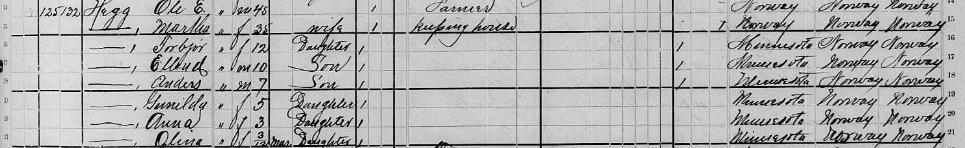 125 132 Hegg Ole E. " m 45 1 Farmer Norway Norway Norway
—, Martha " f 35 wife 1 keeping house 1 Norway Norway Norway 15
—, Torbjor " f 12 Daughter 1 1 Minnesota Norway Norway 16
—, Elland " m 10 Son 1 1 Minnesota Norway Norway 17
—, Anders " m 7 Son 1 1 Minnesota Norway Norway 18
—, Gunilda " f 5 Daughter 1 Minnesota Norway Norway 19
—, Anna " f 3 Daughter 1 Minnesota Norway Norway 20
—, Olina " f 3/12 Mar. Daughter 1 Minnesota Norway Norway 21